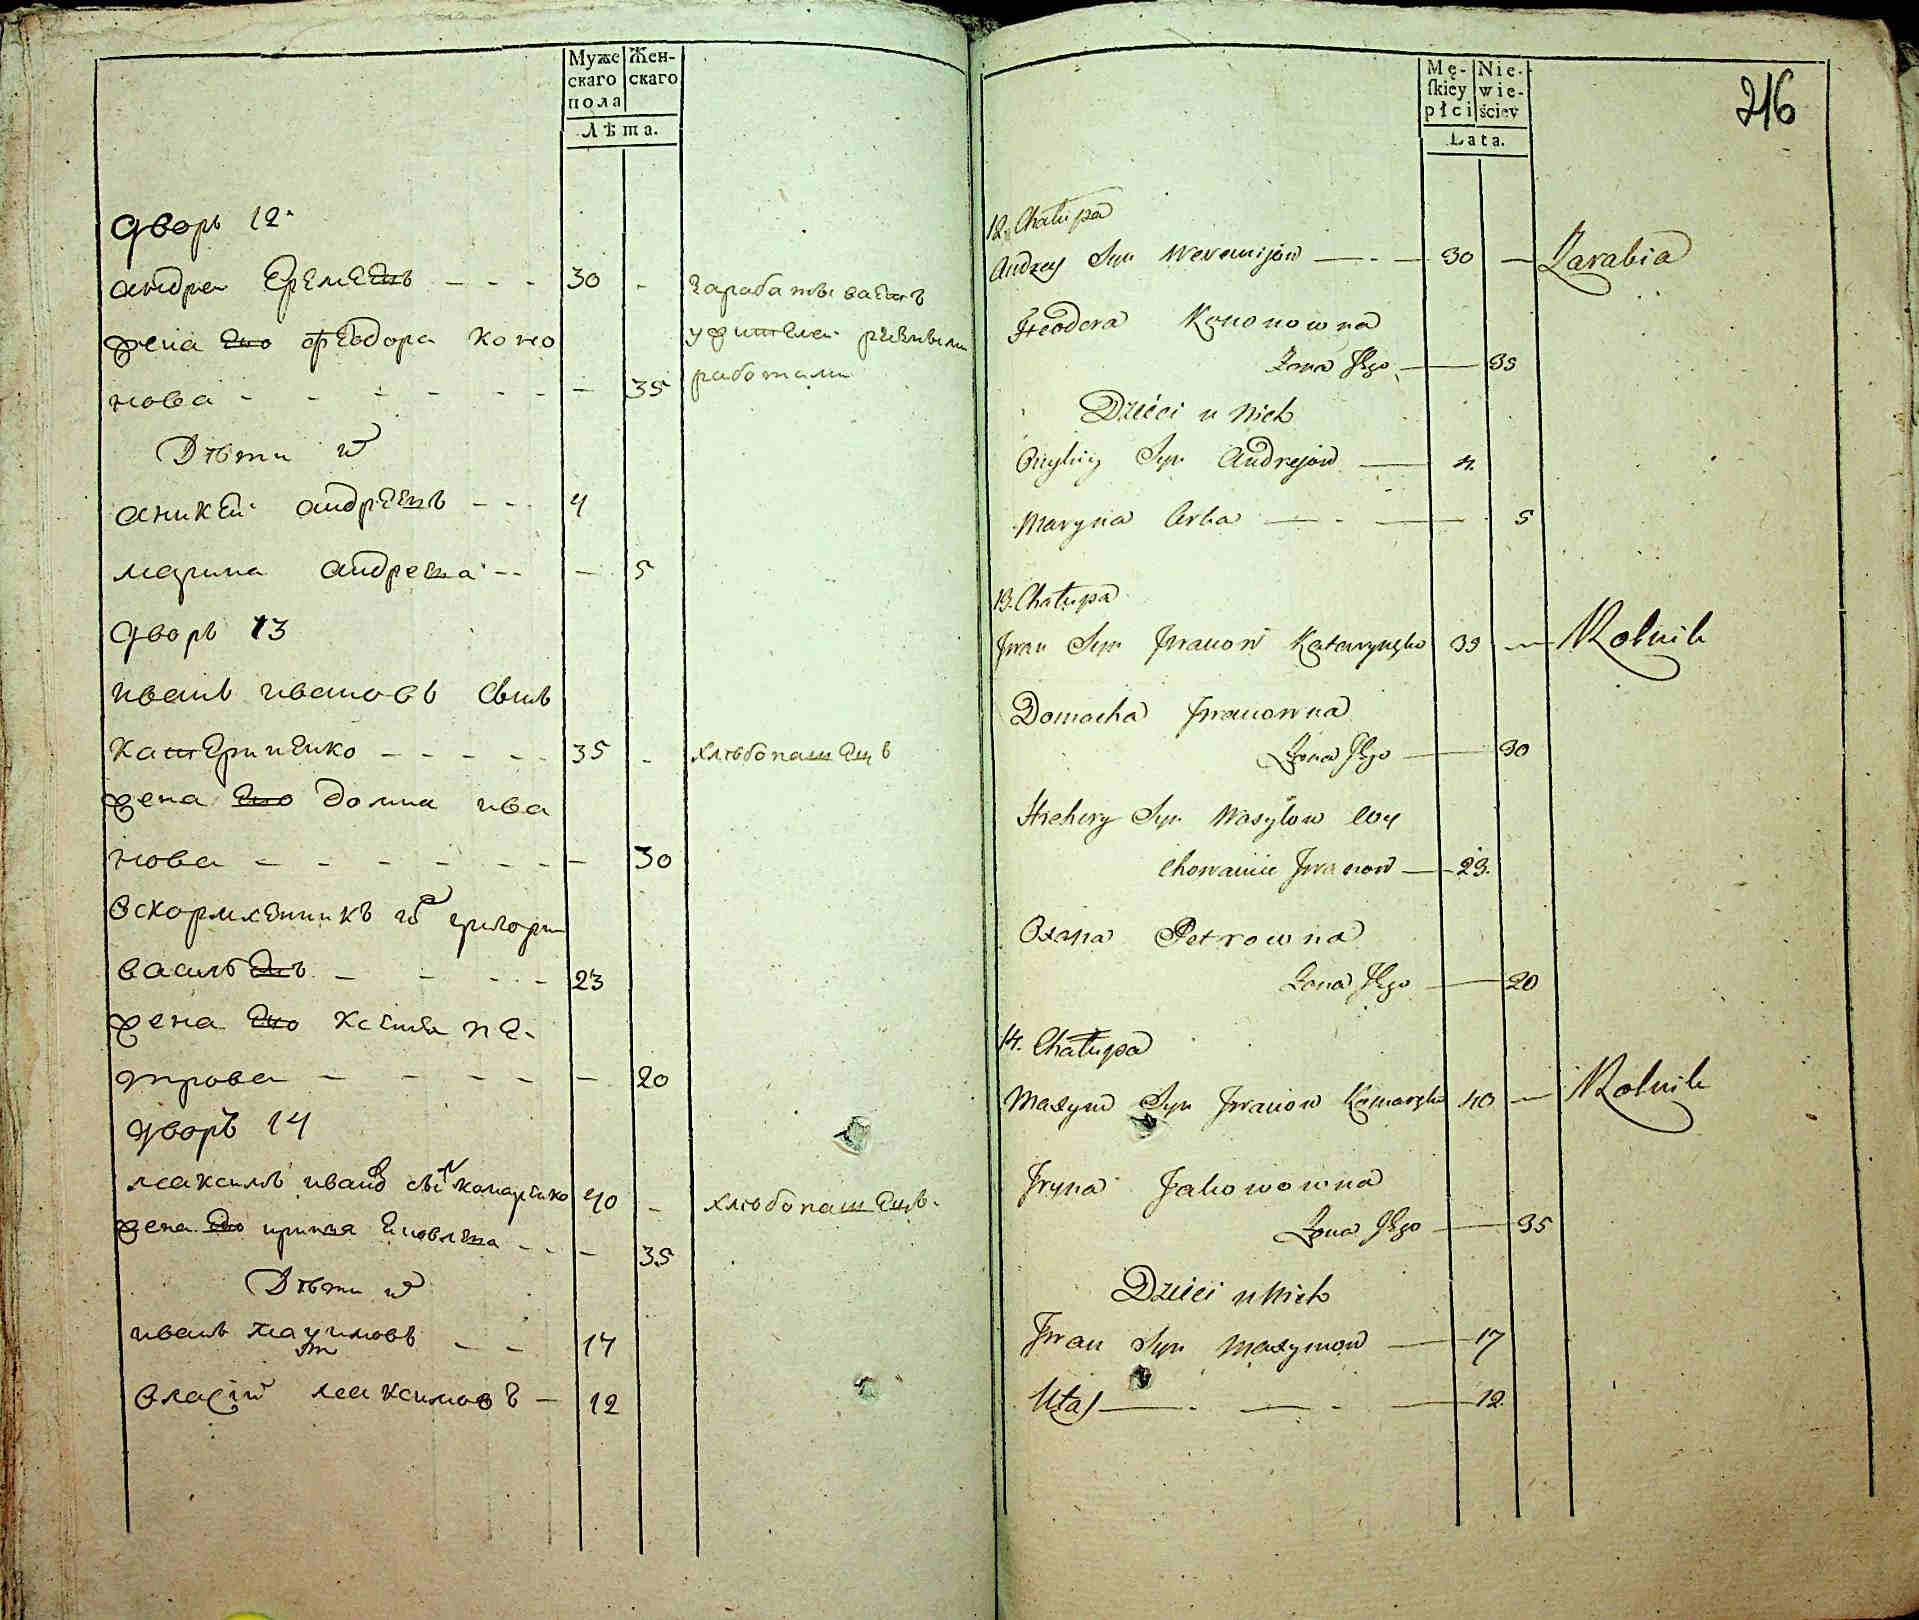 Муже
скаго
пола
Жен-
скаго
Лѣта.
Дворъ 12
андреи Еремеевъ - - - 30 -
жена его феодора коно
нова - - - - - - - 35
зарабативаетъ
работами
Дѣти их
аникеи андреевъ - - - 4
марина андреева - - - 5
Дворъ 13
иванъ ивановъ сынъ
катериненко - - - - - 35 - хлѣбопашецъ
жена его домна ива
нова - - - - - - - 30
вскормленникъ их григори
васильевъ - - - - 23
жена его ксения пе-
трова - - - - - 20
Дворъ 14
максимъ иванов сын комаренко 40 - хлѣбопашецъ.
жена его ирина яковлева - - - 35
Дѣти их
иванъ максимовъ - - 17
власии максимовъ - 12
Mę-
skiey
płci
Nie-
wie-
ściey
Lata.
216
12. Chałupa
Andrey Syn Weremijow — - — 30 — Zarabia
Feodora Kononowna
Zona Jego — 35
Dzieci u Nich
Syn Andrejow — 4
Maryna Corka — - — 5
13. Chałupa
Jwan Syn Jwanow Katerynczko 35 — Rolnik
Domacha Jwanowna
Zona Jego — 30
Hrehory Syn Wasylow Wy
chowaniec Jwanow — 23.
Oxana Petrowna
Zona Jego — 20
14. Chałupa
Maxym Syn Jwanow Komarzko 40 — Rolnik
Jryna Jakowowna
Zona Jego — 35
Dzieci u Nich
Jwan Syn Maxymow — 17
Ułas — - — - — 12